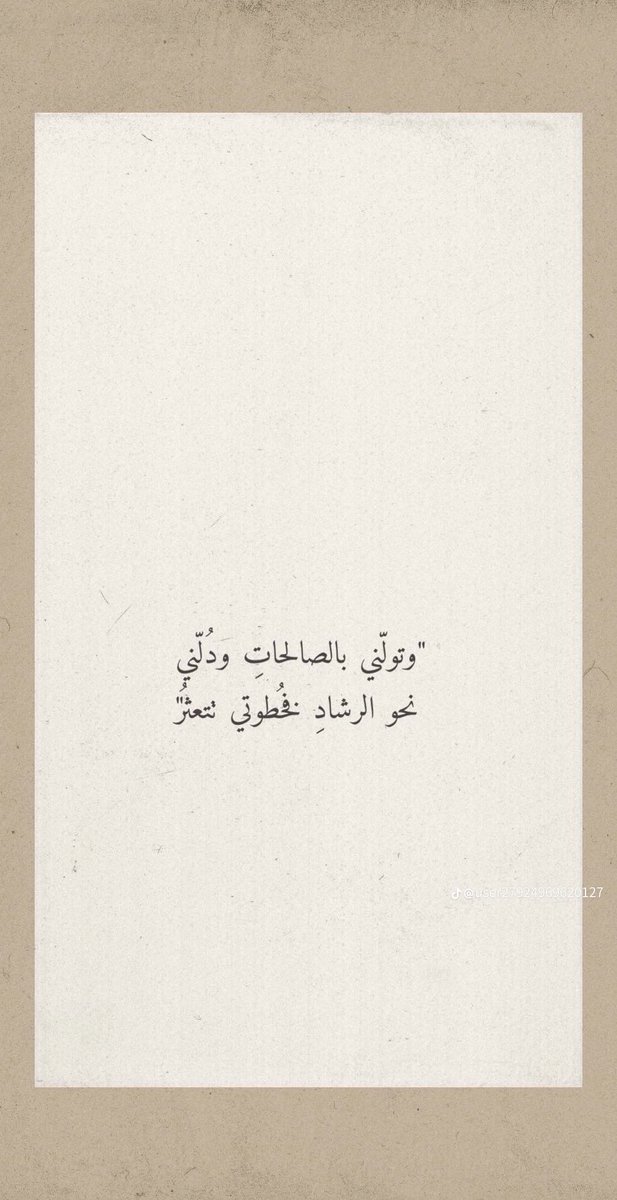 "وتولّني بالصالحاتِ ودُلّني
نحو الرشادِ فخُطوتي تتعثرُ"
@user27924969620127